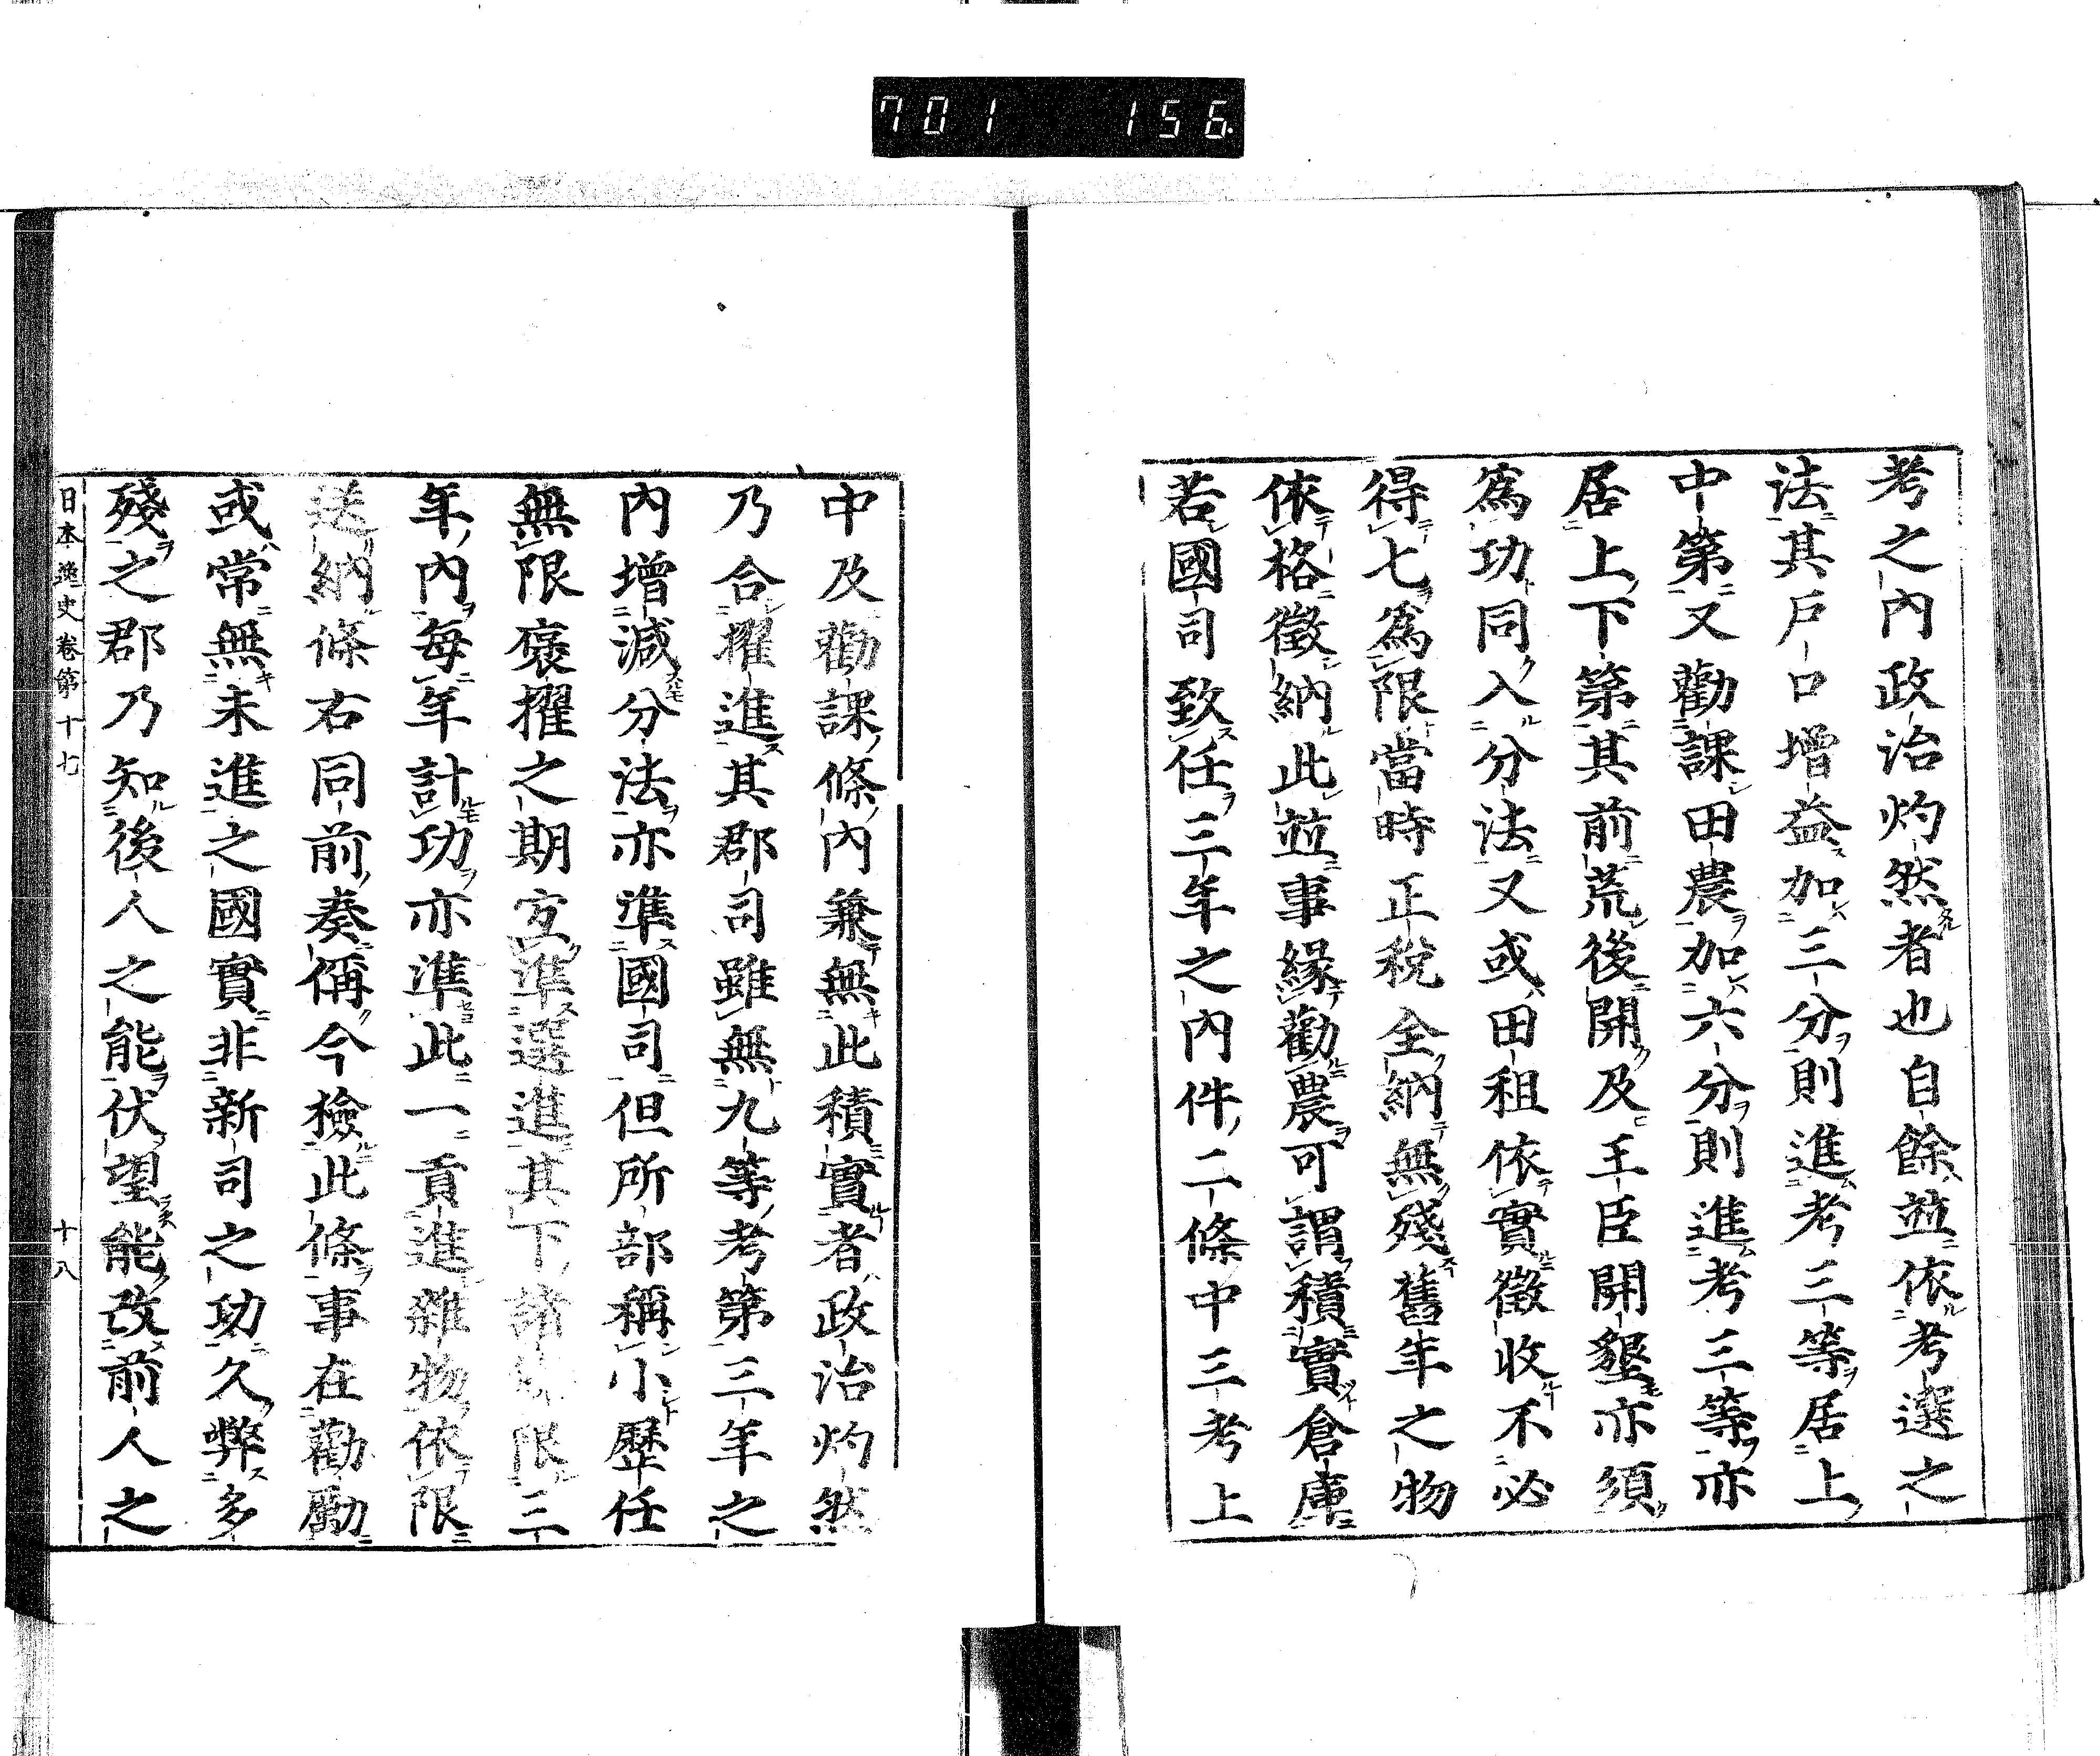 701 156
考之內政治灼然者也自餘並依考選之
法其戶口增益加三分則進考三等居上
中第又勸課田農加六分則進考三等亦
居上下第其前荒後開及王臣開墾亦須
爲功同入分法又或田租依實徵收不必
得七爲限當時正稅全納無殘舊年之物
依格徵納此並事緣勸農可謂積實倉庫
若國司致任三年之內件二條中三考上
中及勸課條內兼無此積實者政治灼然
乃合擢進其郡司雖無九等考第三年之
內增減分法亦準國司但所部稱小歷任
無限褒擢之期宜準選進其下諸限三
年內每年計功亦準此一貢進雜物依限
送納條右同前奏偁今檢此條事在勸勵
或常無未進之國實非新司之功久弊多
殘之郡乃知後人之能伏望能改前人之
日本逸史卷第十七 十八